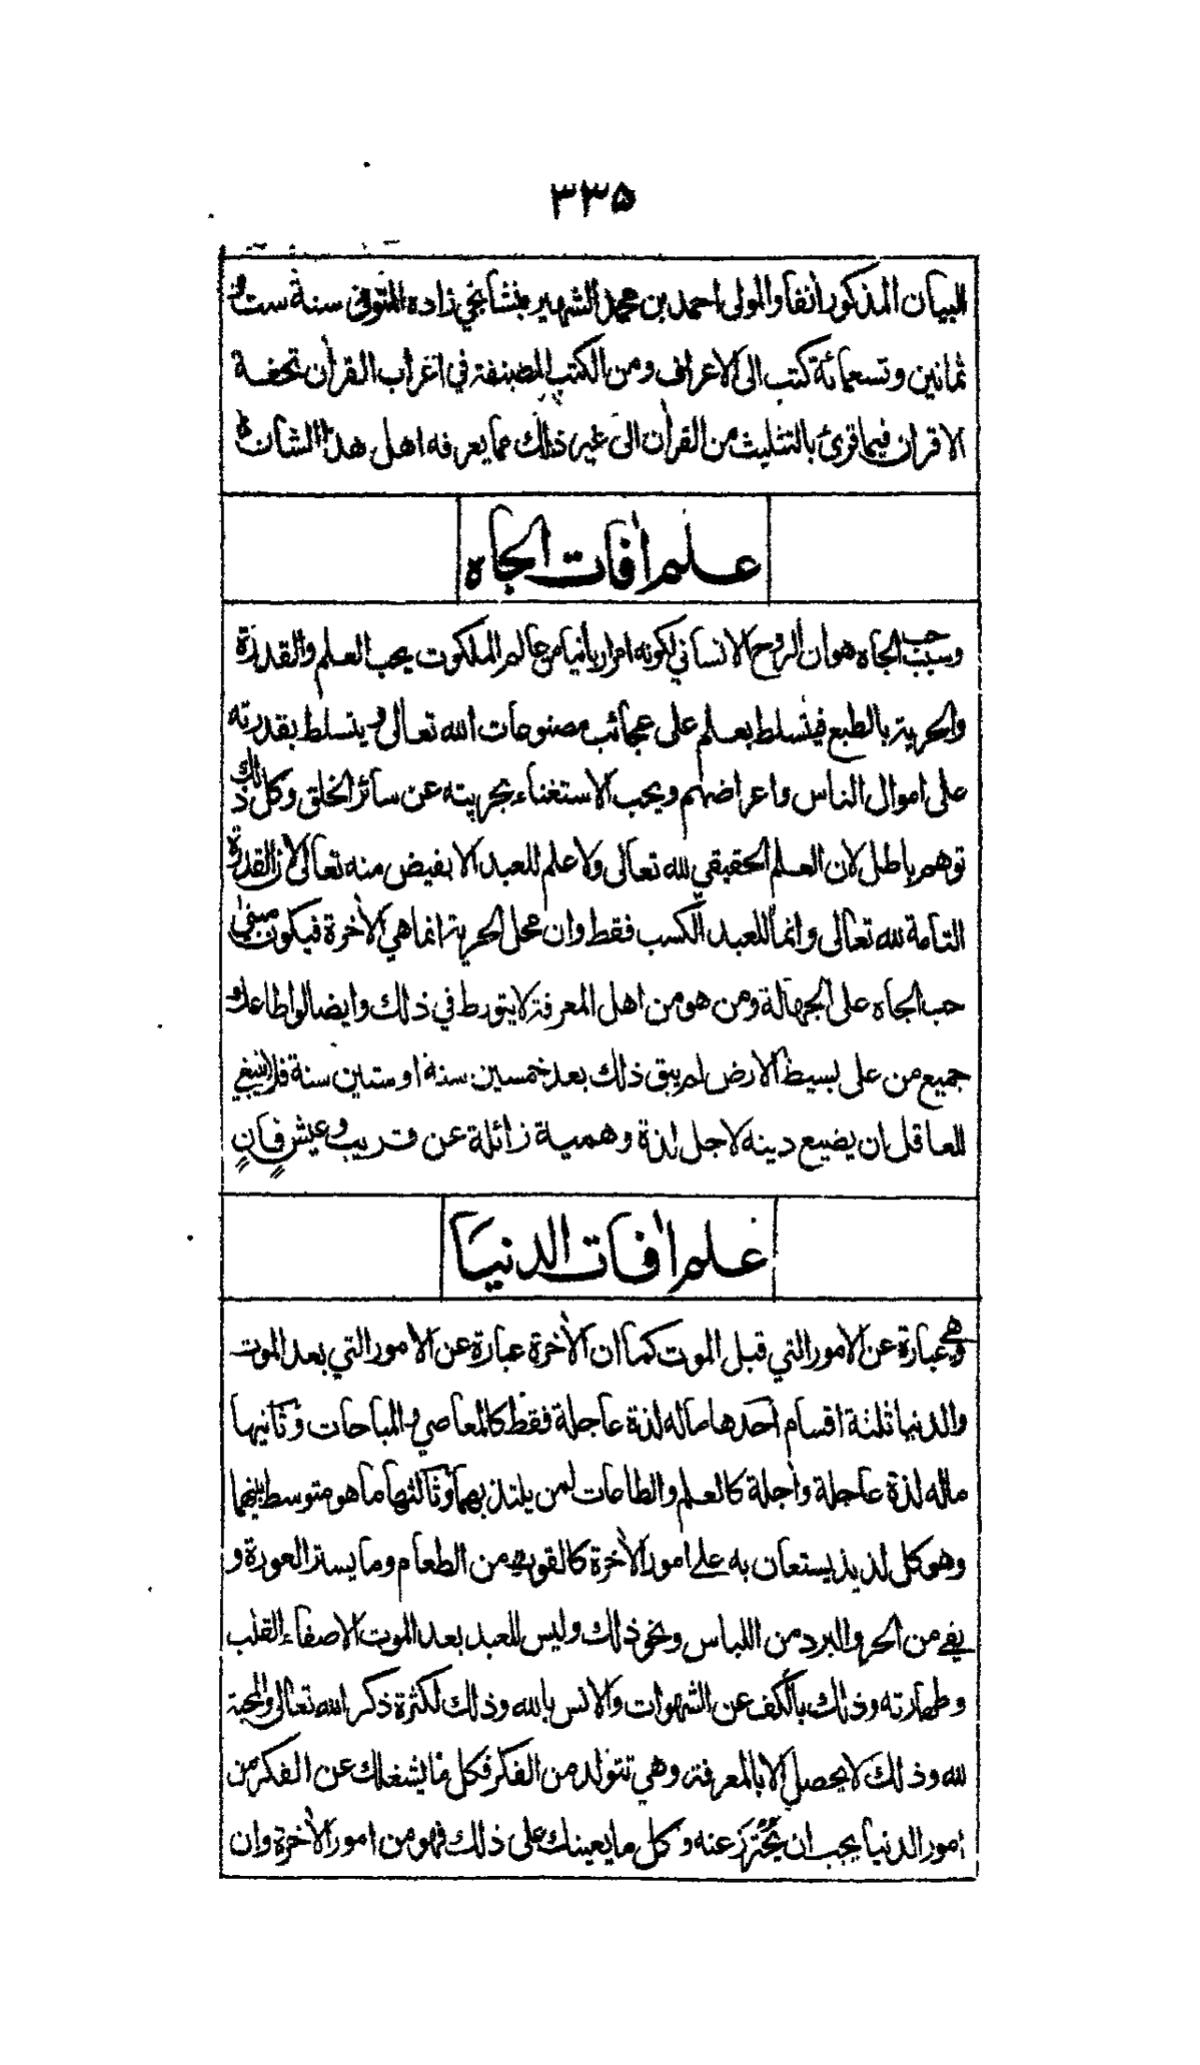 ۳۳۵
البيان المذكور انفا والمولى احمد بن محمد الشهير بنشانجي زاده المتوفى سنة ست و
ثمانين وتسعمائة كتب الى الاعراف ومن الكتب المصنفة في اعراب القران تحفة
الاقران فيما قرئ بالتثليث من القران الى غير ذلك مما يعرفه اهل هذا الشان
علم افات الجاه
وسبب حب الجاه هو ان الروح الانساني لكونه امرا ربانيا من عالم الملكوت يحب العلم والقدرة
والحرية بالطبع فيتسلط بعلم على عجائب مصنوعات الله تعالى ويتسلط بقدرته
على اموال الناس واعراضهم ويحب الاستغناء بحريته عن سائر الخلق وكل ذلك
توهم باطل لان العلم الحقيقي لله تعالى ولا علم للعبد الا بفيض منه تعالى لان القدرة
التامة لله تعالى وانما للعبد الكسب فقط وان محل الحرية انما هي الاخرة فيكون مبنى
حب الجاه على الجهالة ومن هو من اهل المعرفة لا يتورط في ذلك وايضا لو اطاعك
جميع من على بسيط الارض لم يبق ذلك بعد خمسين سنة او ستين سنة فلا ينبغي
للعاقل ان يضيع دينه لاجل لذة وهمية زائلة عن قريب وعيش فانٍ
علم افات الدنيا
وهي عبارة عن الامور التي قبل الموت كما ان الاخرة عبارة عن الامور التي بعد الموت
والدنيا ثلثة اقسام احدها ماله لذة عاجلة فقط كالمعاصي والمباحات وثانيها
ماله لذة عاجلة واجلة كالعلم والطاعات لمن يلتذ بهما وثالثها ما هو متوسط بينهما
وهو كل لذيذ يستعان به على امور الاخرة كالقوت من الطعام وما يستر العورة و
يقي من الحر والبرد من اللباس ونحو ذلك وليس للعبد بعد الموت الا صفاء القلب
وطهارته وذلك بالكف عن الشهوات والانس بالله وذلك لكثرة ذكر الله تعالى والمحبة
لله وذلك لا يحصل الا بالمعرفة وهي تتولد من الفكر فكل ما يشغلك عن الفكر من
امور الدنيا يجب ان يُحترز عنه وكل ما يعينك على ذلك فهو من امور الاخرة وان